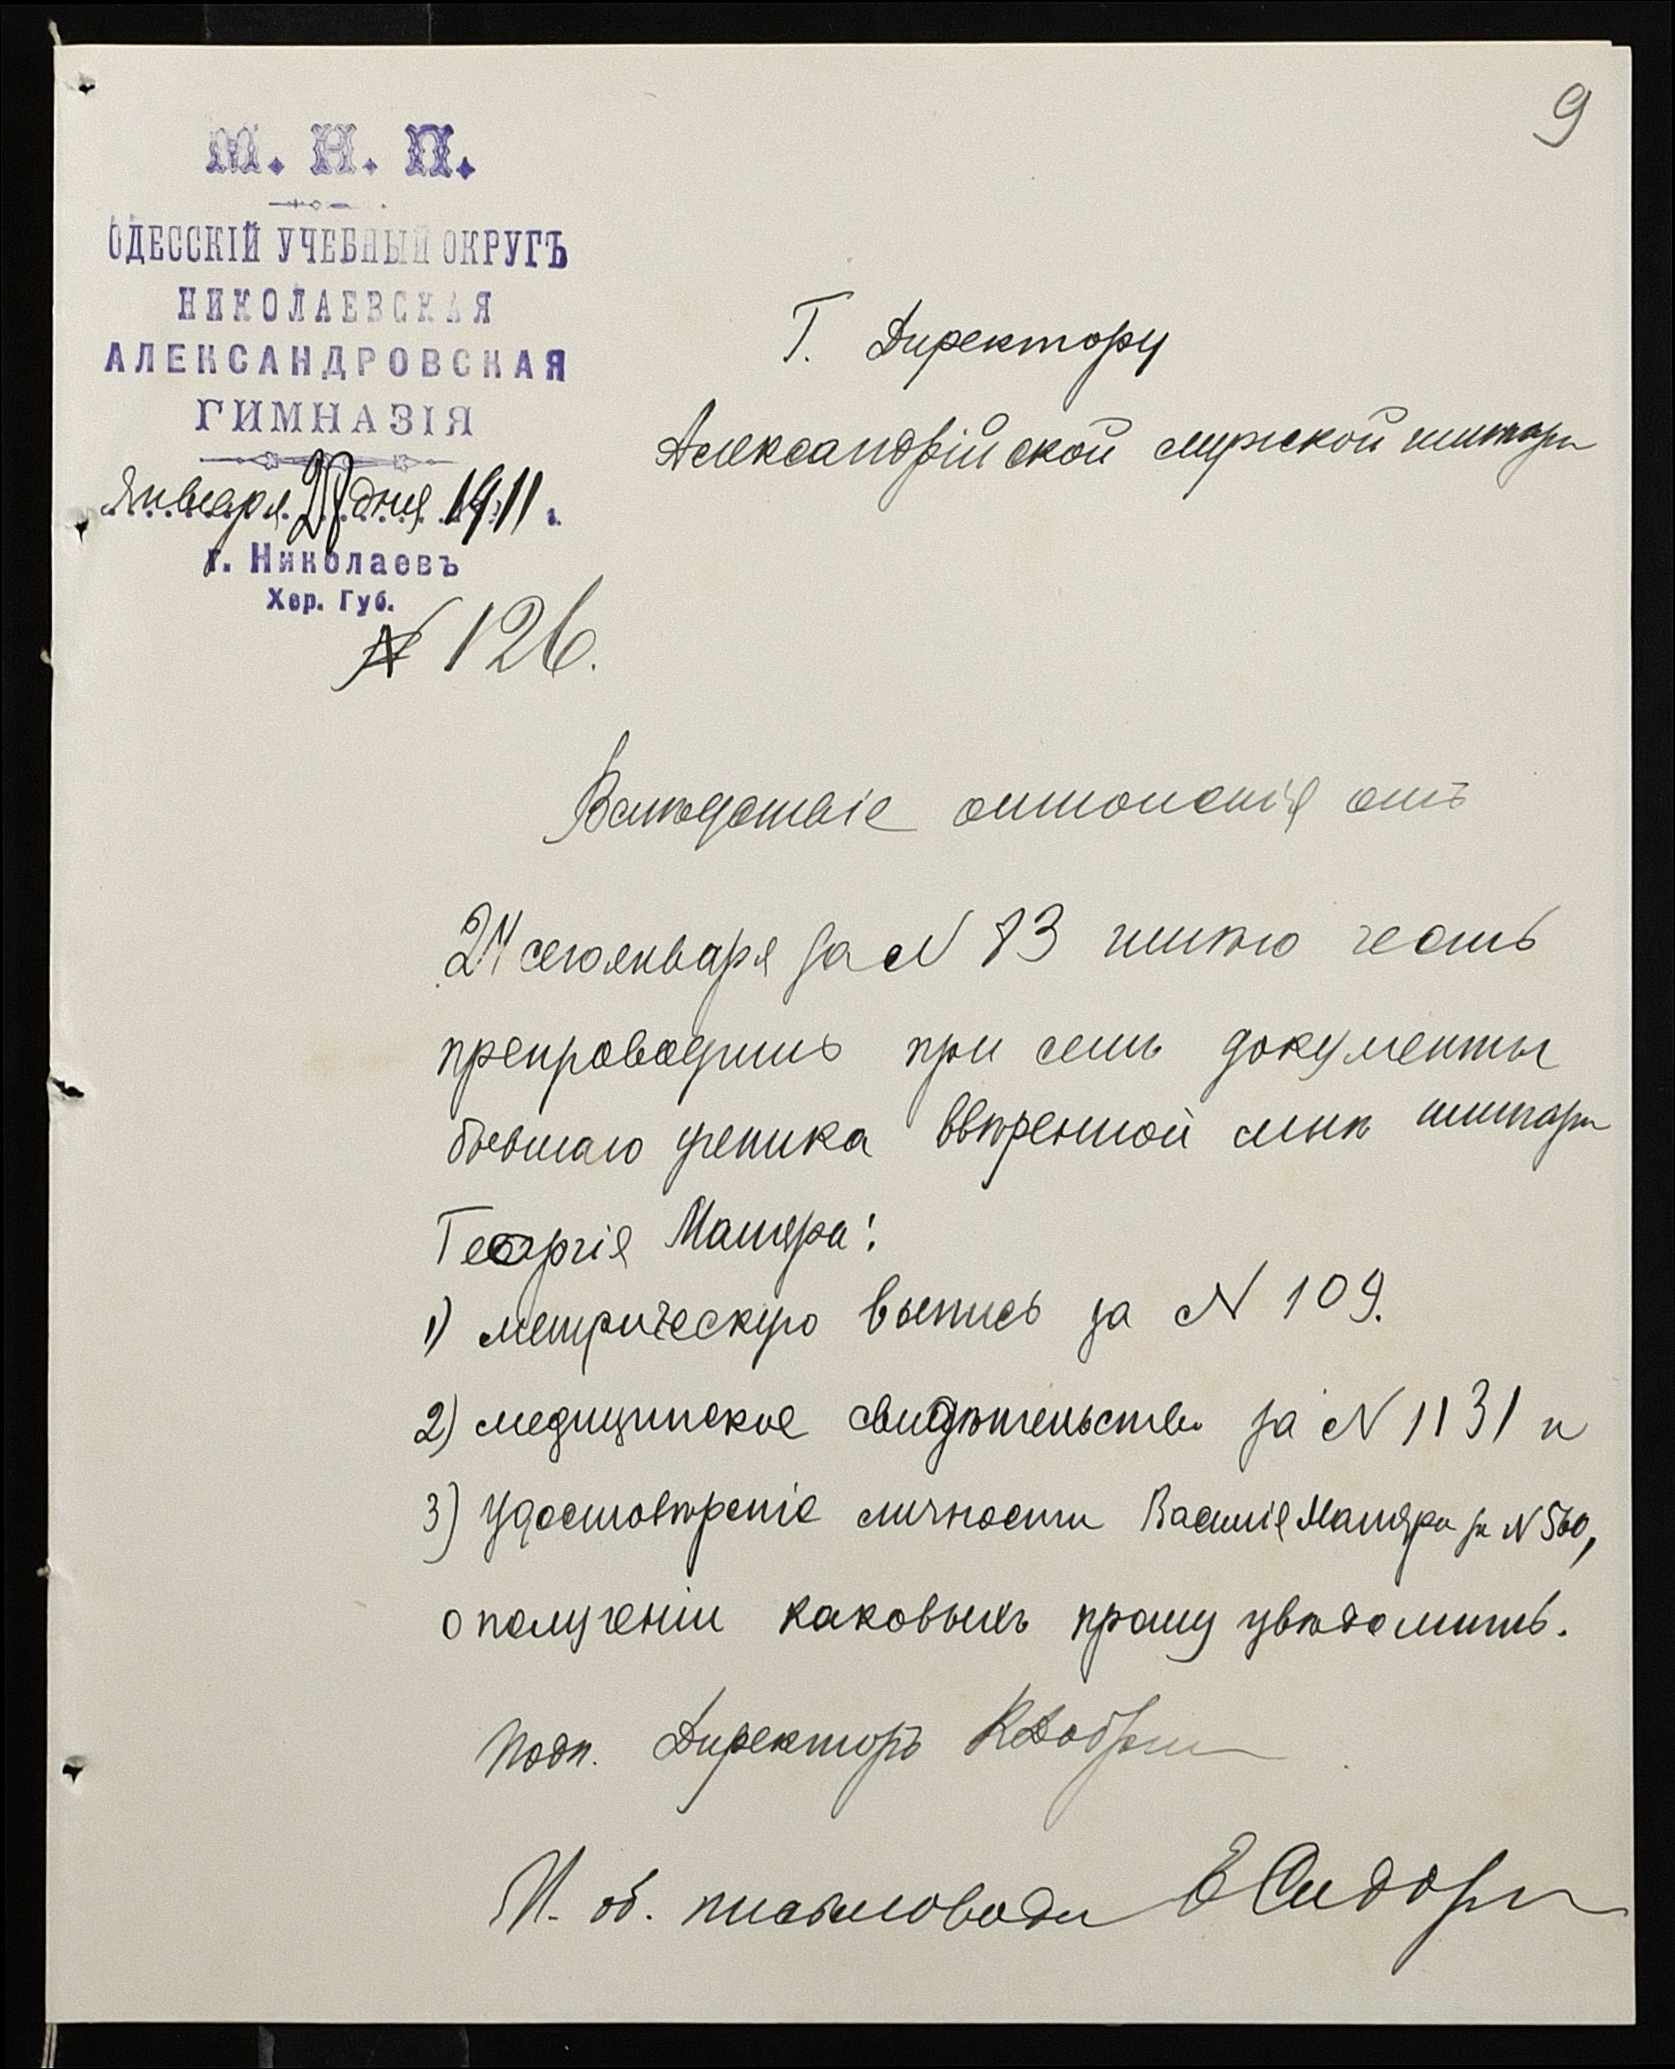 9
М. Н. П.
ОДЕССКІЙ УЧЕБНЫЙ ОКРУГЪ
НИКОЛАЕВСКАЯ
АЛЕКСАНДРОВСКАЯ
ГИМНАЗІЯ
Января дня 1911 г.
г. Николаевъ
Хер. Губ.
№ 126.
Г. Директору
Александрійской мужской
Вслѣдствіе отношенія отъ
сего января за № 73 имѣю честь
препроводить при семъ документы
бывшаго ученика ввѣренной мнѣ
Георгія Матяра:
1) метрическую выпись за № 109.
2) медицинское свидѣтельство за № 1131 и
3) удостовѣреніе личности Василія Матяра за № 560,
о полученіи каковыхъ прошу увѣдомить.
Подп. Директоръ
И. об. письмоводи